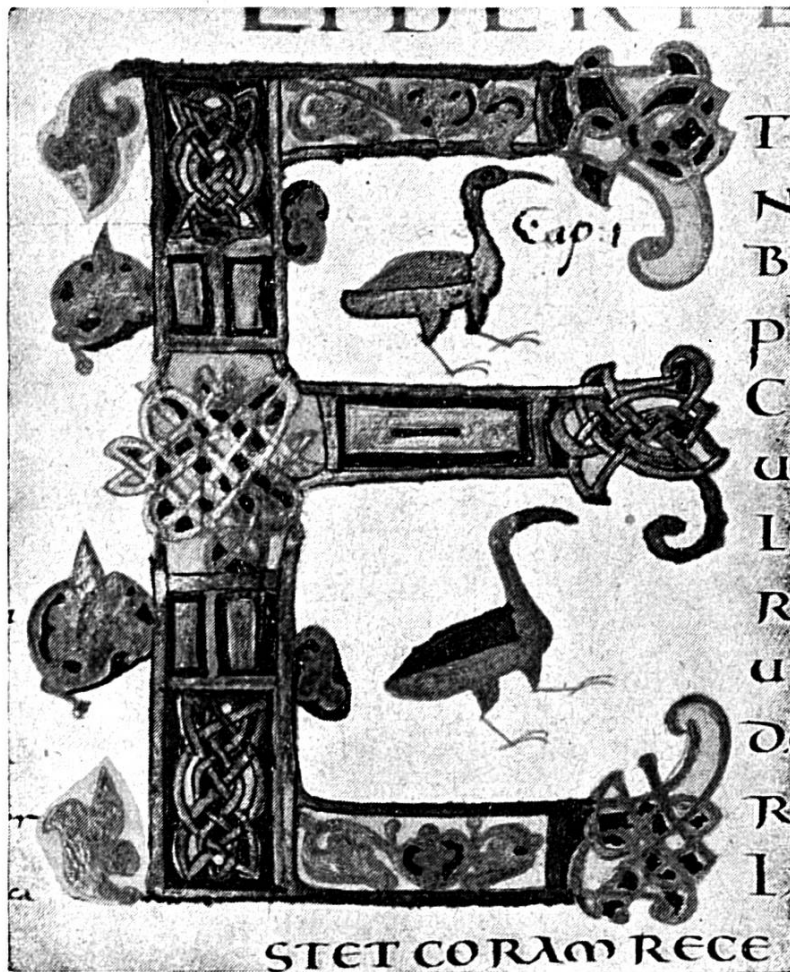 E
T
N
Cap: 1
B
P
C
U
L
R
U
D
R
L
STET CORAM REGE